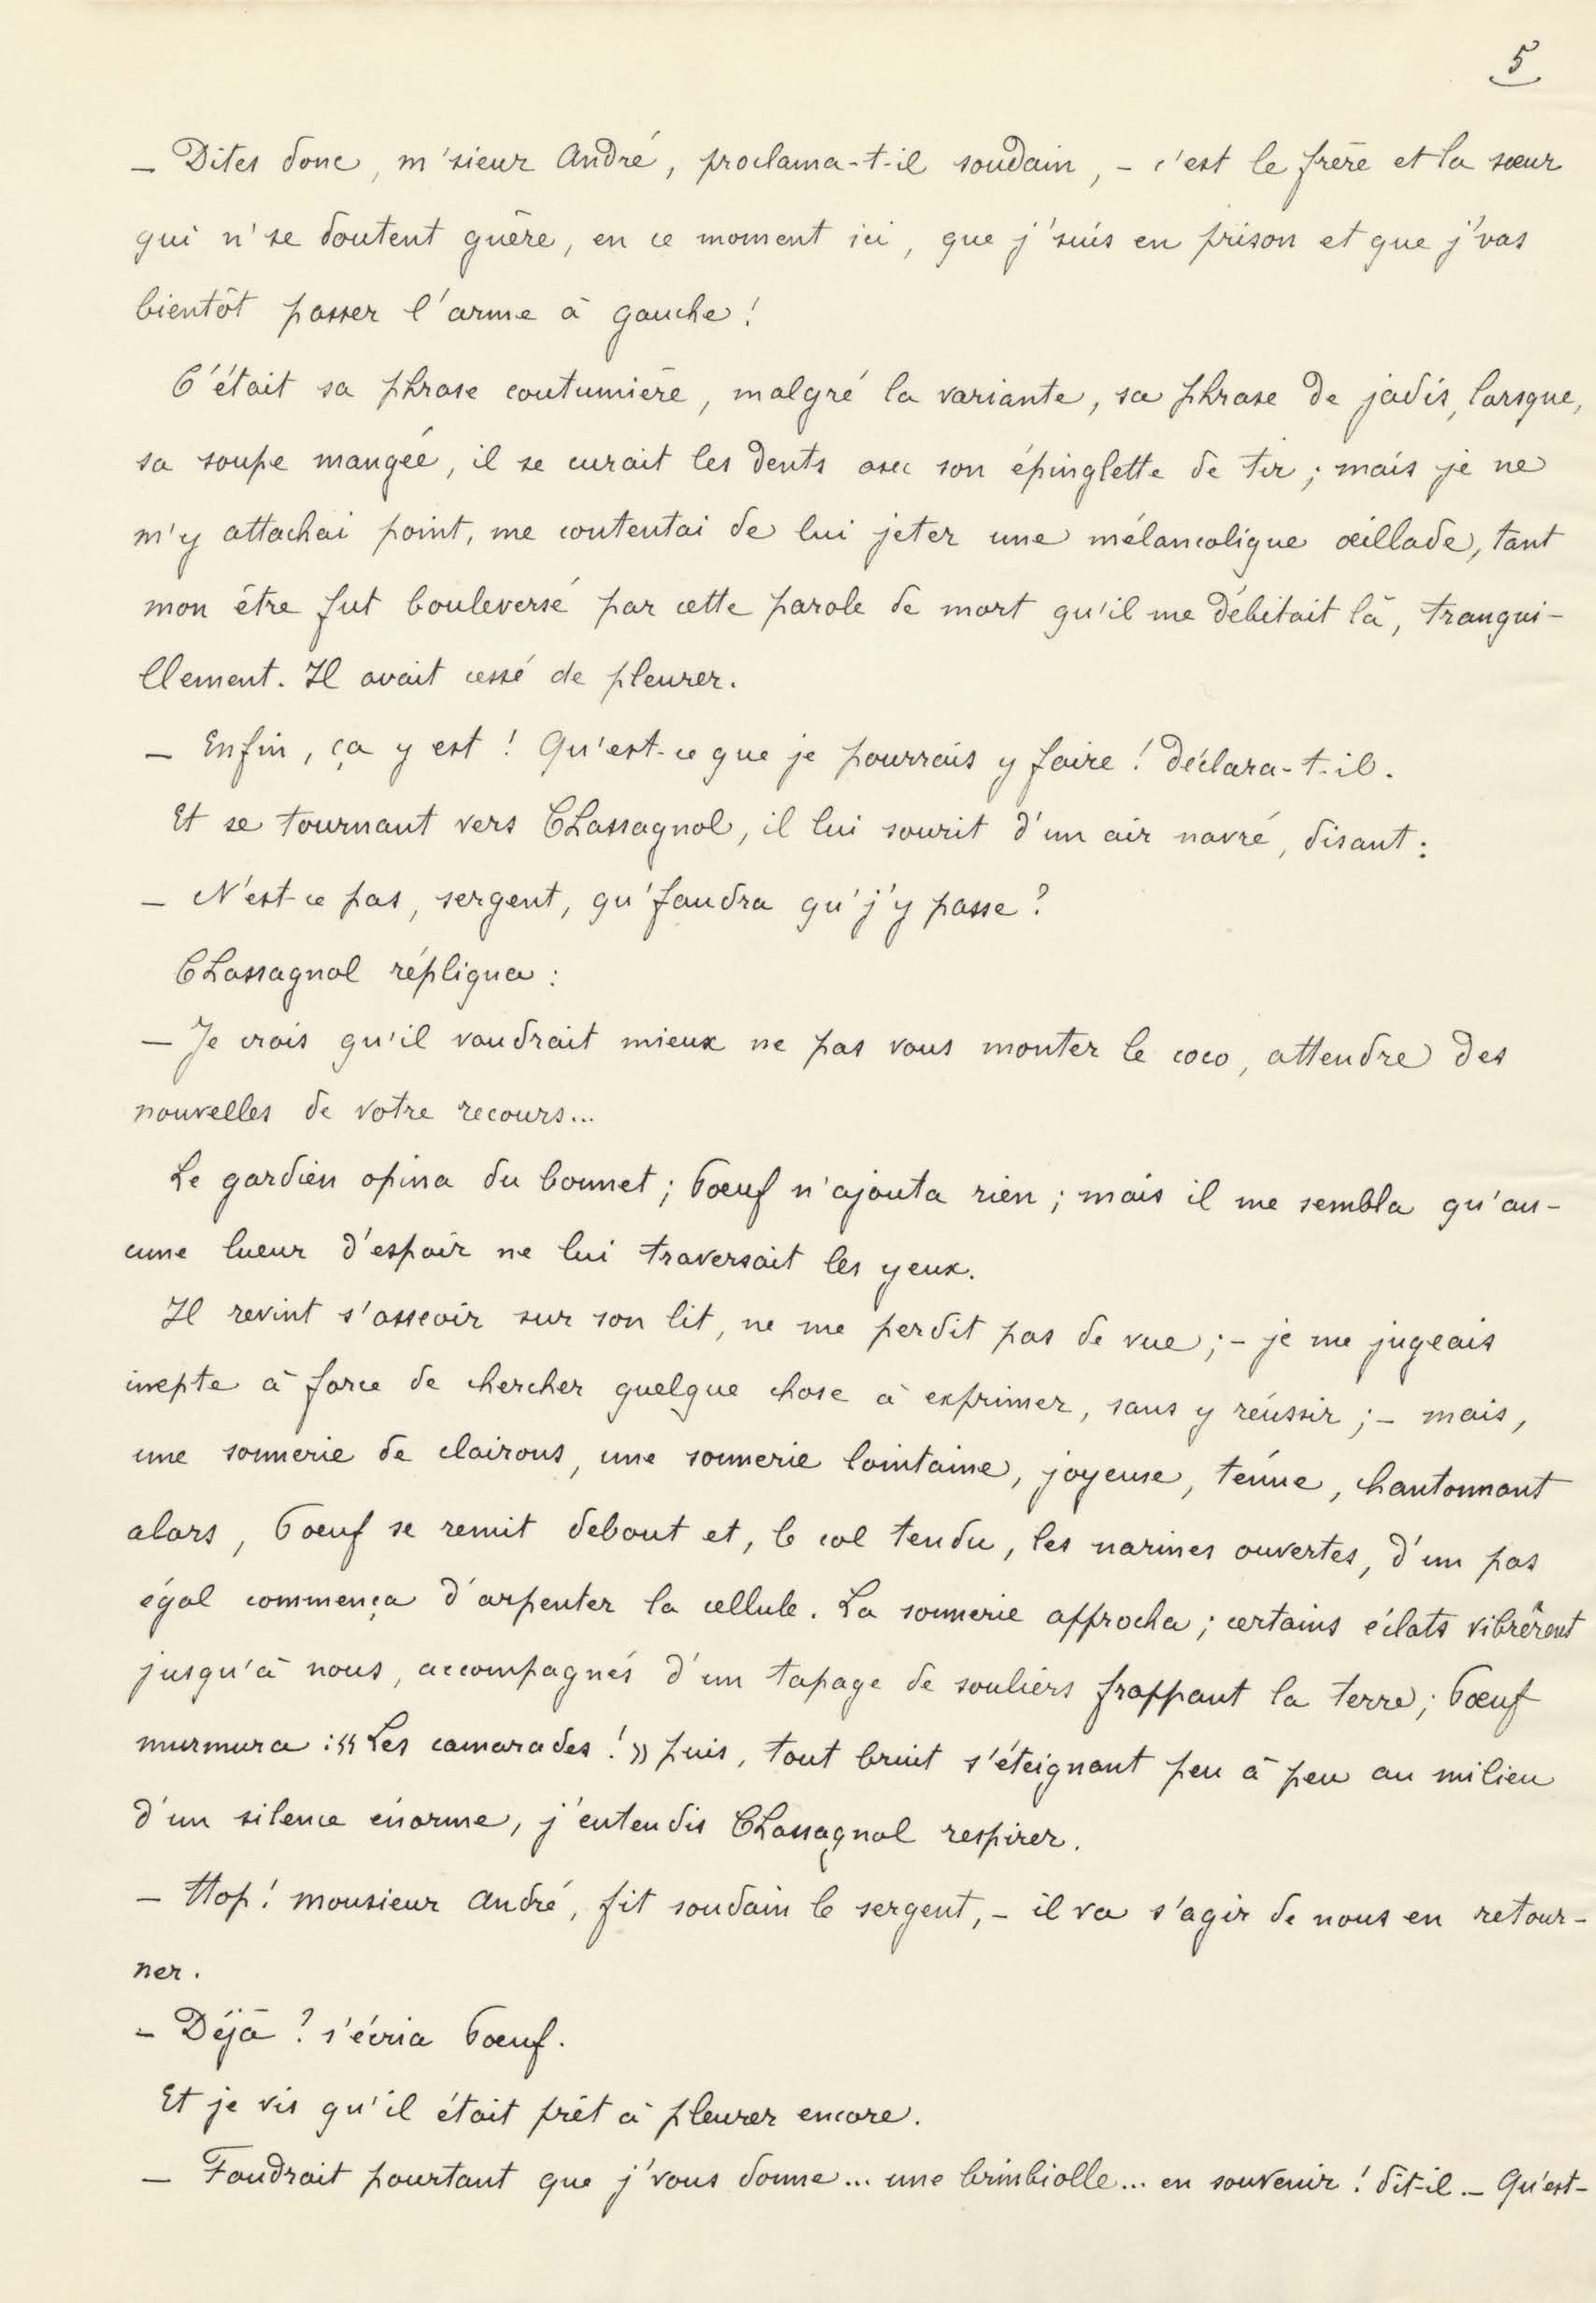 5
— Dites donc, m'sieur André, proclama-t-il soudain, – c'est le frère et la sœur
qui n'se doutent guère, en ce moment ici, que j'suis en prison et que j'vas
bientôt passer l'arme à gauche !
C'était sa phrase coutumière, malgré la variante, sa phrase de jadis, lorsque,
sa soupe mangée, il se curait les dents avec son épinglette de tir ; mais je ne
m'y attachai point, me contentai de lui jeter une mélancolique œillade, tant
mon être fut bouleversé par cette parole de mort qu'il me débitait là, tranqui-
llement. Il avait cessé de pleurer.
— Enfin, ça y est ! Qu'est-ce que je pourrais y faire ! déclara-t-il.
Et se tournant vers Chassagnol, il lui sourit d'un air navré, disant :
— N'est-ce pas, sergent, qu'faudra qu'j'y passe ?
Chassagnol répliqua :
— Je crois qu'il vaudrait mieux ne pas vous monter le coco, attendre des
nouvelles de votre recours...
Le gardien opina du bonnet ; Bœuf n'ajouta rien ; mais il me sembla qu'au-
cune lueur d'espoir ne lui traversait les yeux.
Il revint s'asseoir sur son lit, ne me perdit pas de vue ; – je me jugeais
inepte à force de chercher quelque chose à exprimer, sans y réussir ; – mais,
une sonnerie de clairons, une sonnerie lointaine, joyeuse, ténue, chantonnant
alors, Bœuf se remit debout et, le col tendu, les narines ouvertes, d'un pas
égal commença d'arpenter la cellule. La sonnerie approcha ; certains éclats vibrèrent
jusqu'à nous, accompagnés d'un tapage de souliers frappant la terre ; Bœuf
murmura : « Les camarades ! » puis, tout bruit s'éteignant peu à peu au milieu
d'un silence énorme, j'entendis Chassagnol respirer.
— Hop ! monsieur André, fit soudain le sergent, – il va s'agir de nous en retour-
ner.
— Déjà ? s'écria Bœuf.
Et je vis qu'il était prêt à pleurer encore.
— Faudrait pourtant que j'vous donne... une brimbiolle... en souvenir ! dit-il. – Qu'est-